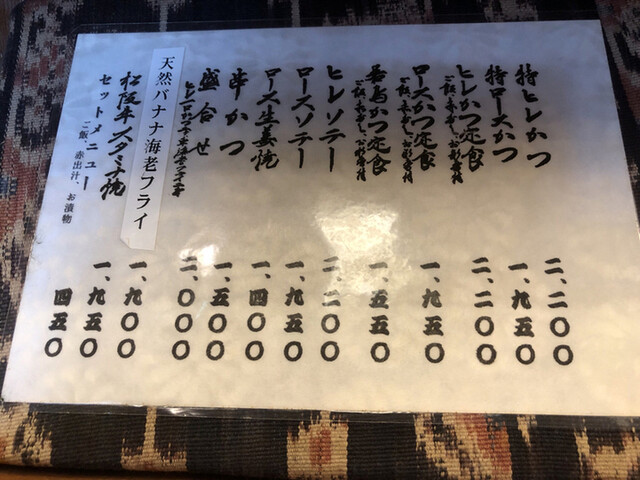 特ヒレかつ 二、二〇〇
特ロースかつ 一、九五〇
ヒレかつ定食 二、二〇〇
ご飯、赤だし、お新香付
ロースかつ定食 一、九五〇
ご飯、赤だし、お新香付
若鳥かつ定食 一、五五〇
ご飯、赤だし、お新香付
ヒレソテー 二、二〇〇
ロースソテー 一、九五〇
ロース生姜焼 一、四〇〇
串かつ 一、五〇〇
盛合せ 二、〇〇〇
天然バナナ海老フライ 一、九〇〇
松阪牛スタミナ焼 一、九五〇
セットメニュー 四五〇
ご飯 赤出汁、お漬物